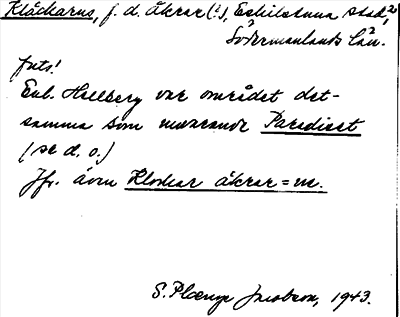 Klåckarne, f. d. åkrar(?), Eskilstuna stad,
Södermanlands län.
fnts!
Enl. Hellberg var området det-
samma som nuvarande Paradiset
(se d. o.)
Jfr. även Klockar åkrar=na.
S. Plænge Jacobson, 1943.